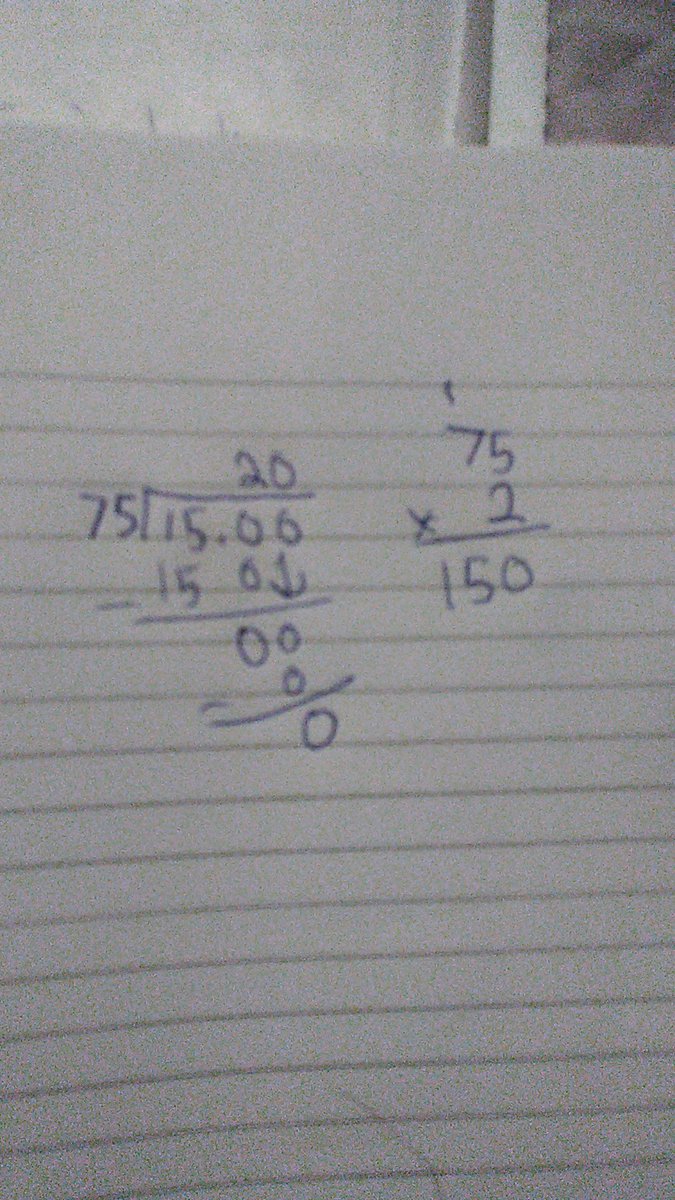 20
75
75 15.00
× 2
- 15 0↓
150
00
- 0
0